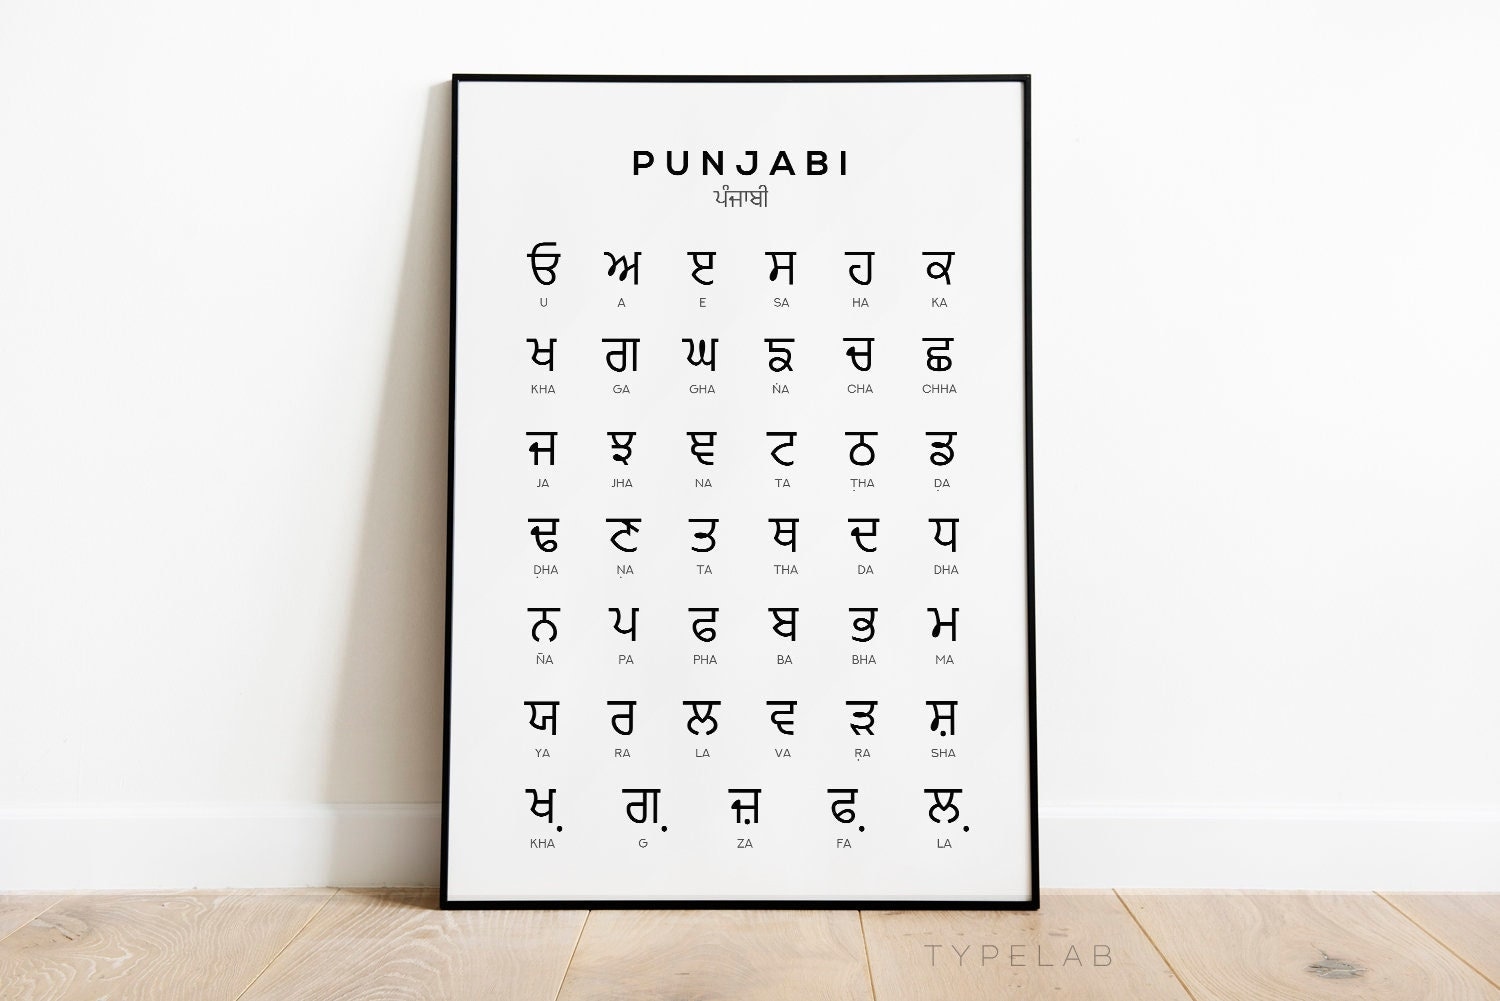 PUNJABI
ਪੰਜਾਬੀ
ਓ ਅ ੲ ਸ ਹ ਕ
U A E SA HA KA
ਖ ਗ ਘ ਙ ਚ ਛ
KHA GA GHA ṄA CHA CHHA
ਜ ਝ ਞ ਟ ਠ ਡ
JA JHA NA TA ṬHA ḌA
ਢ ਣ ਤ ਥ ਦ ਧ
ḌHA ṆA TA THA DA DHA
ਨ ਪ ਫ ਬ ਭ ਮ
ÑA PA PHA BA BHA MA
ਯ ਰ ਲ ਵ ੜ ਸ਼
YA RA LA VA ṚA SHA
ਖ਼ ਗ਼ ਜ਼ ਫ਼ ਲ਼
KHA G ZA FA LA
TYPELAB